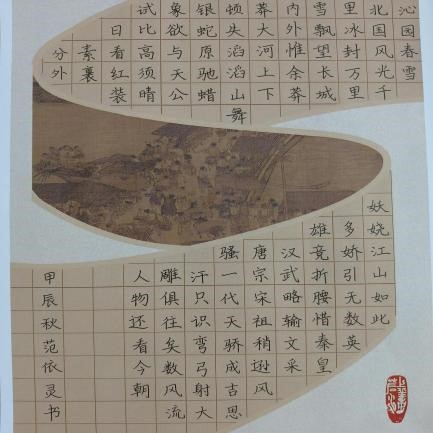 沁园春雪
北国风光千
里冰封万里
雪飘望长城
内外惟余莽
莽大河上下
顿失滔滔山舞
银蛇原驰蜡
象欲与天公
试比高须晴
日看红装
素裹
分外
妖娆江山如此
多娇引无数英
雄竞折腰惜秦皇
汉武略输文采
唐宗宋祖稍逊风
骚一代天骄成吉思
汗只识弯弓射大
雕俱往矣数风流
人物还看今朝
甲辰秋范依灵书